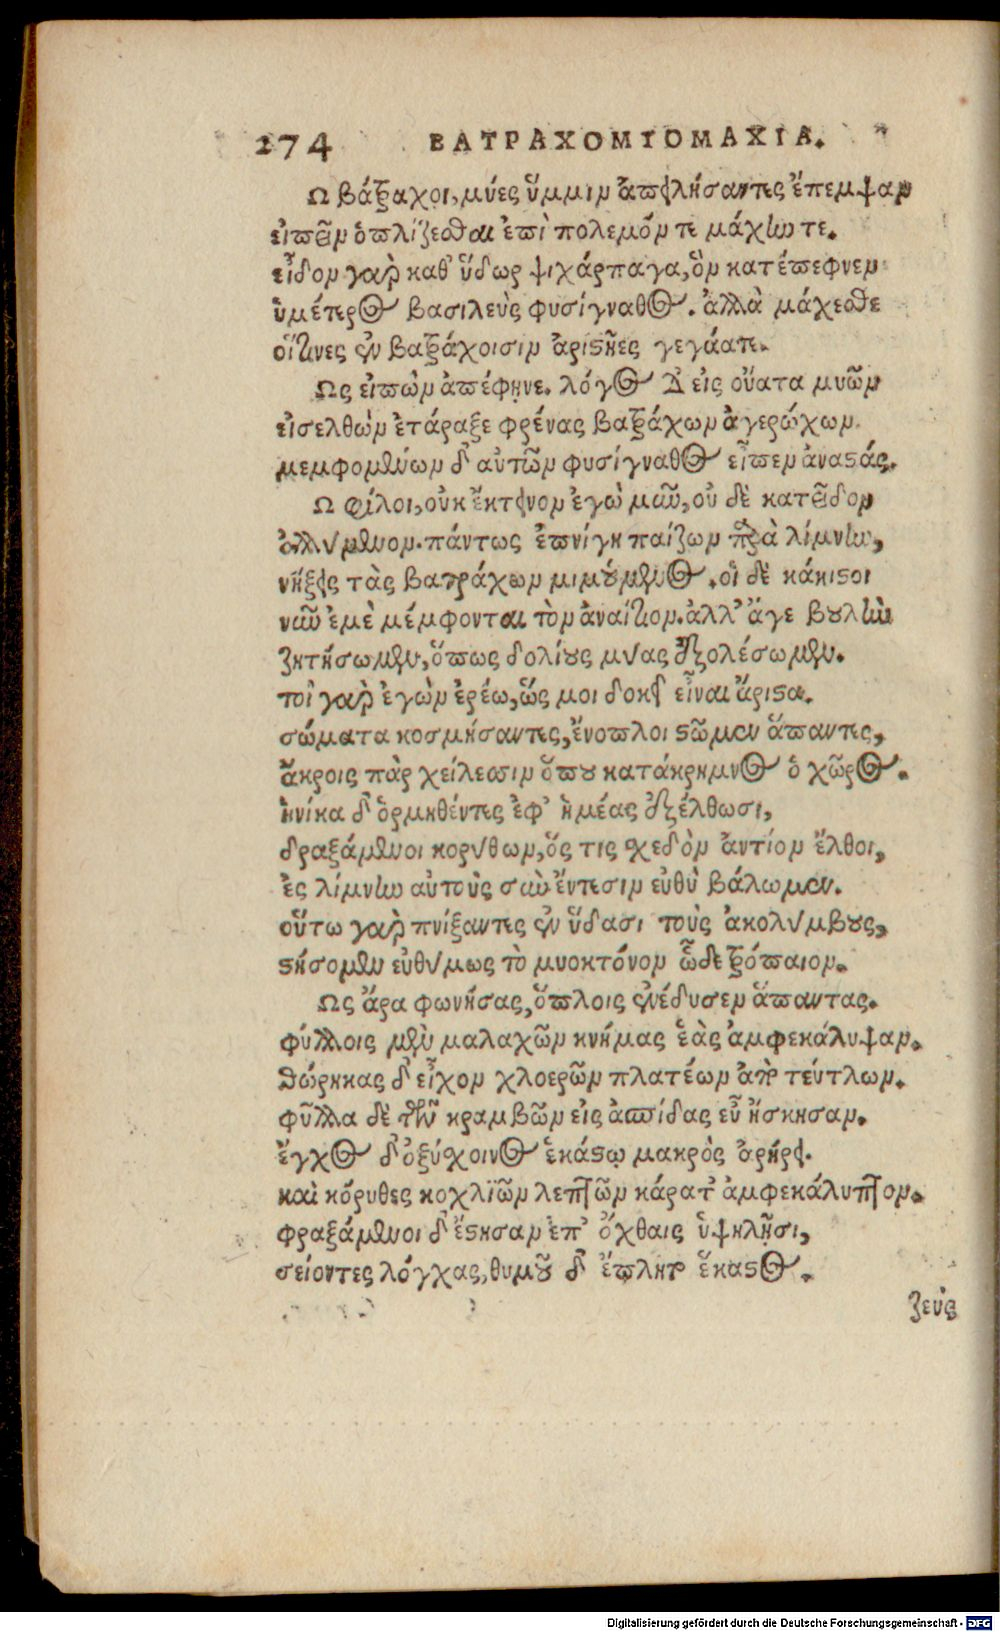 274 ΒΑΤΡΑΧΟΜΙΟΜΑΧΙΑ.
Ω βάτραχοι, μύες ὔμμιν ἀπειλήσαντες ἔπεμψαν
εἰπεῖν ὁπλίζεσθαι ἐπὶ πολεμόν τε μάχην τε.
εἶδον γὰρ καθ᾽ ὕδωρ ψιχάρπαγα, ὃν κατέπεφνεν
ὑμέτερος βασιλεὺς φυσίγναθος. ἀλλὰ μάχεσθε
οἵτινες ἐν βατράχοισιν ἀριστῆες γεγάατε.
Ως εἰπὼν ἀπέφηνε. λόγος δ' εἰς οὔατα μυῶν
εἰσελθὼν ἐτάραξε φρένας βατράχων ἀγερώχων.
μεμφομένων δ᾽ αὐτῶν φυσίγναθος εἶπεν ἀναστάς.
Ω φίλοι, οὐκ ἔκτεινον ἐγὼ μῦν, οὐ δὲ κατεῖδον
ὀλλύμενον. πάντως ἐπνίγη παίζων παρὰ λίμνην,
νήξεις τὰς βατράχων μιμούμενος. οἱ δὲ κάκιστοι
νῦν ἐμὲ μέμφονται τὸν ἀναίτιον. ἀλλ᾽ ἄγε βουλὴν
ζητήσωμεν, ὅπως δολίους μύας ἐξολέσωμεν.
τοὶ γὰρ ἐγὼν ἐρέω, ὥς μοι δοκεῖ εἶναι ἄριστα.
σώματα κοσμήσαντες, ἔνοπλοι στῶμεν ἅπαντες,
ἄκροις πὰρ χείλεσιν ὅπου κατάκρημνος ὁ χῶρος.
ἡνίκα δ᾽ ὁρμηθέντες ἐφ᾽ ἡμέας ἐξέλθωσι,
δραξάμενοι κορύθων, ὅς τις σχεδὸν ἀντίον ἔλθοι,
ἐς λίμνην αὐτοὺς σὺν ἔντεσιν εὐθὺ βάλωμεν.
οὕτω γὰρ πνίξαντες ἐν ὕδασι τοὺς ἀκολύμβους,
στήσομεν εὐθύμως τὸ μυοκτόνον ὧδε τρόπαιον.
Ως ἄρα φωνήσας, ὅπλοις ἐνέδυσεν ἅπαντας.
φύλλοις μὲν μαλαχῶν κνήμας ἑὰς ἀμφεκάλυψαν.
θώρηκας δ᾽ εἶχον χλοερῶν πλατέων ἀπὸ τεύτλων.
φῦλλα δὲ τῶν κραμβῶν εἰς ἀσπίδας εὖ ἤσκησαν.
ἔγχος δ᾽ ὀξύσχοινος ἑκάστῳ μακρὸς ἀρήρει.
καὶ κόρυθες κοχλϊῶν λεπτῶν κάρατ᾽ ἀμφεκάλυπτον.
φραξάμενοι δ᾽ ἔστησαν ἐπ᾽ ὄχθαις ὑψηλῇσι,
σείοντες λόγχας, θυμοῦ δ᾽ ἔπλητο ἕκαστος.
ζεὺς
Digitalisierung gefördert durch die Deutsche Forschungsgemeinschaft - DFG